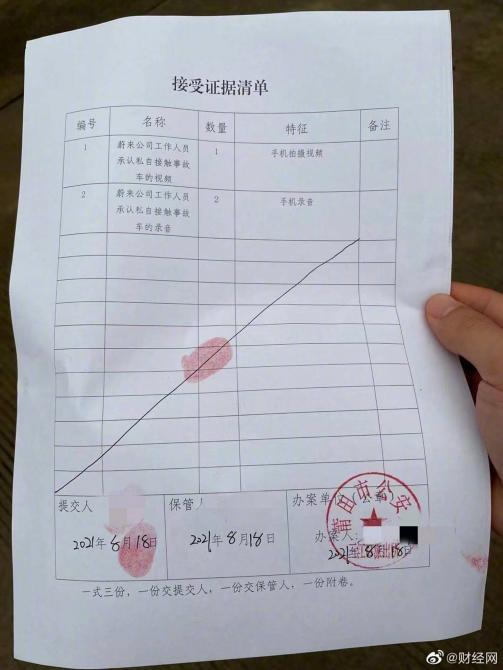 接受证据清单
编号 名称 数量 特征 备注
1 蔚来公司工作人员 1 手机拍摄视频
承认私自接触事故
车的视频
2 蔚来公司工作人员 2 手机录音
承认私自接触事故
车的录音
提交人 保管 办案单位（公章）
莆田市公安
办案人
2021年8月18日 2021年8月18日 2021年8月18日
一式三份，一份交提交人，一份交保管人，一份附卷。
@财经网